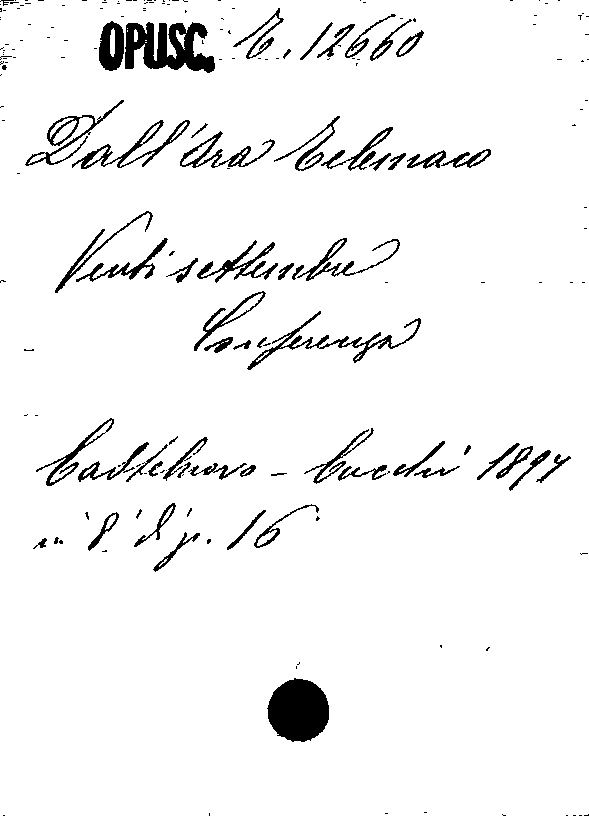 OPUSC. E. 12660
Dall'Ara Telemaco
Venti settembre
Conferenza
Castelnovo - Cucchi 1897
in 8° di p. 16